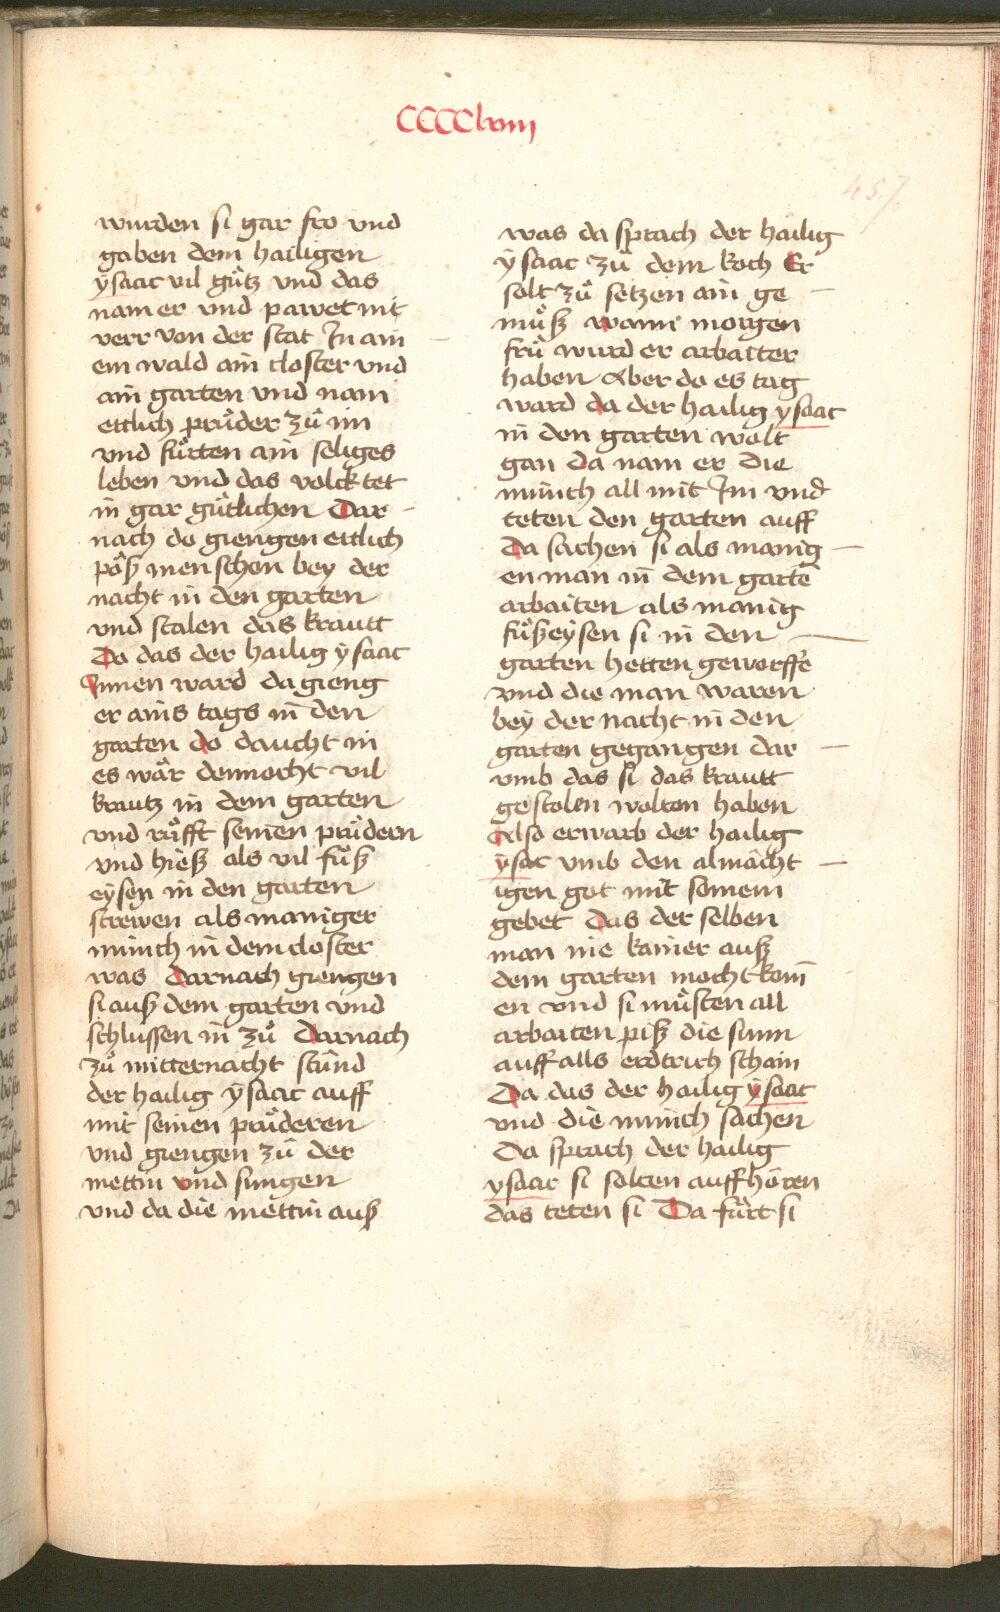 CCCClviij
457
wurden si gar fro vnd
gaben dem hailigen
ÿsaac vil gůtz vnd das
nam er vnd pawet nit
verr von der stat Jn ain
em wald ain closter vnd
ain garten vnd nam
ettlich průder zů im
vnd fůrten ain seliges
leben vnd das volck tet
in gar gůtlichen Dar
nach do giengen ettlich
pôß menschen bey der
nacht in den garten
vnd stalen das krautt
Da das der hailig ÿsaac
Jnnen ward da gieng
er ains tags in den
garten do daucht in
es wår dennocht vil
krautz in dem garten
vnd růfft seinen průdern
vnd hieß als vil fůß
eÿsen in den garten
strewen als maniger
münch in dem closter
was Darnach giengen
si auß dem garten vnd
schlussen in zů Darnach
zů mitternacht stůnd
der hailig ÿsaac auff
mit seinen průderen
vnd giengen zů der
mettin vnd sungen
vnd da die mettin auß
was da sprach der hailig
ÿsaac zů dem koch Er
solt zů setzen ain ge
můß wann morgen
frů wurd er arbaitter
haben Aber do es tag
ward da der hailig ysaac
in den garten wolt
gan da nam er die
münch all mit Jm vnd
teten den garten auff
Da sachen si als manig
en man in dem gartē
arbaiten als manig
fůßeÿsen si in den
garten hetten geworffē
vnd die man waren
beÿ der nacht in den
garten gegangen dar
vmb das si das krautt
gestolen wolten haben
Also erwarb der hailig
ÿsac vmb den almåcht
igen got mit seinem
gebet Das der selben
man nie kainer auß
dem garten mocht kom̄
en vnd si můsten all
arbaiten piß die sunn
auff alls erdtrich schain
Da das der hailig ÿsaac
vnd die münch sachen
Da sprach der hailig
ysaac si solten auffhôren
das teten si Da fůrt si